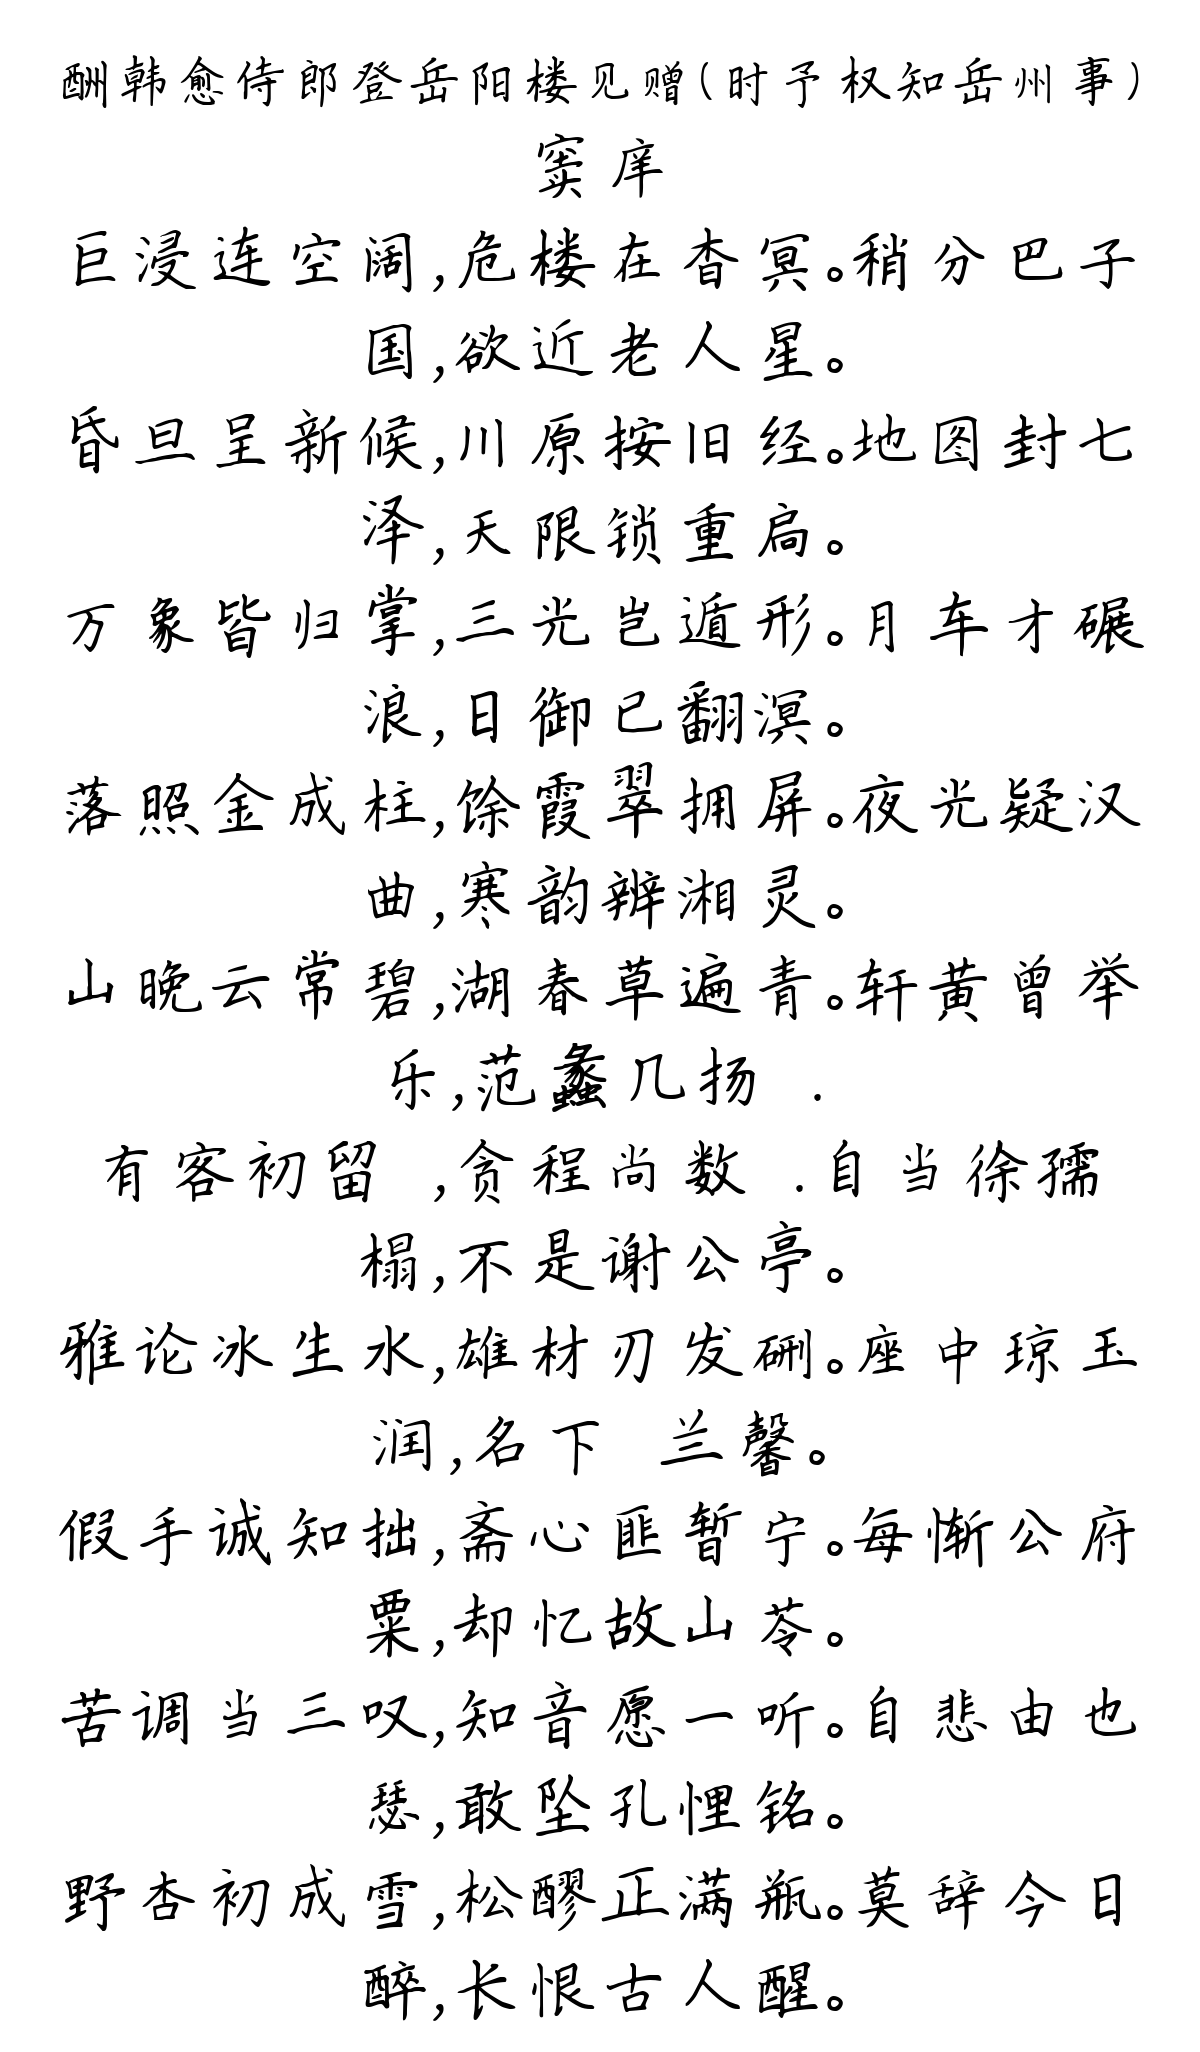 酬韩愈侍郎登岳阳楼见赠(时予权知岳州事)
窦庠
巨浸连空阔,危楼在杳冥。稍分巴子
国,欲近老人星。
昏旦呈新候,川原按旧经。地图封七
泽,天限锁重扃。
万象皆归掌,三光岂遁形。月车才碾
浪,日御已翻溟。
落照金成柱,馀霞翠拥屏。夜光疑汉
曲,寒韵辨湘灵。
山晚云常碧,湖春草遍青。轩黄曾举
乐,范蠡几扬 .
有客初留 ,贪程尚数 .自当徐孺
榻,不是谢公亭。
雅论冰生水,雄材刃发硎。座中琼玉
润,名下 兰馨。
假手诚知拙,斋心匪暂宁。每惭公府
粟,却忆故山苓。
苦调当三叹,知音愿一听。自悲由也
瑟,敢坠孔悝铭。
野杏初成雪,松醪正满瓶。莫辞今日
醉,长恨古人醒。